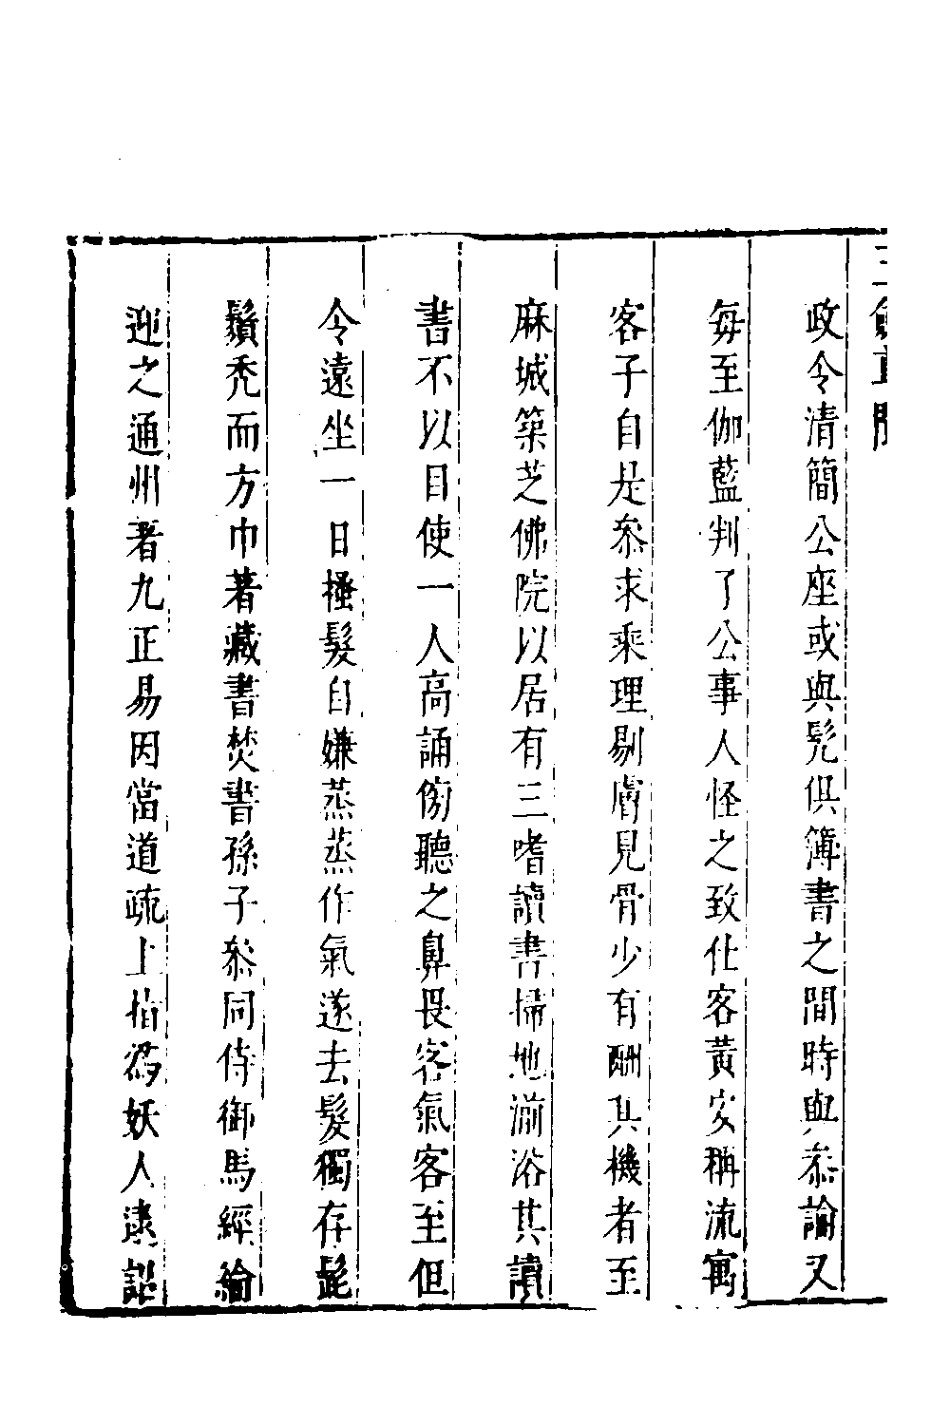 政令清簡公座或與髡俱簿書之間時與叅論又
每至伽藍判了公事人怪之致仕客黃安稱流寓
客子自是叅求乘理剔膚見骨少有酬其機者至
麻城築芝佛院以居有三嗜讀書掃地湔浴其讀
書不以目使一人高誦傍聽之鼻畏客氣客至但
令遠坐一日搔髮自嫌蒸蒸作氣遂去髮獨存髭
鬚禿而方巾著藏書焚書孫子叅同侍御馬經綸
迎之通州著九正易因當道疏上指為妖人逮詔